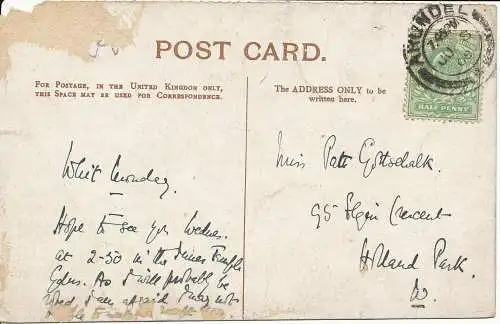 POST CARD.
FOR POSTAGE, IN THE UNITED KINGDOM ONLY,
THIS SPACE MAY BE USED FOR CORRESPONDENCE.
The ADDRESS ONLY to be
written here.
ARUNDEL
HALF PENNY
Whit Monday.
Hope to see you Wednes.
at 2-50 in the Temple
Gdns. As I will probably be
I am afraid I may not
Miss Gottschalk.
95 Elgin Crescent
Holland Park.
W.